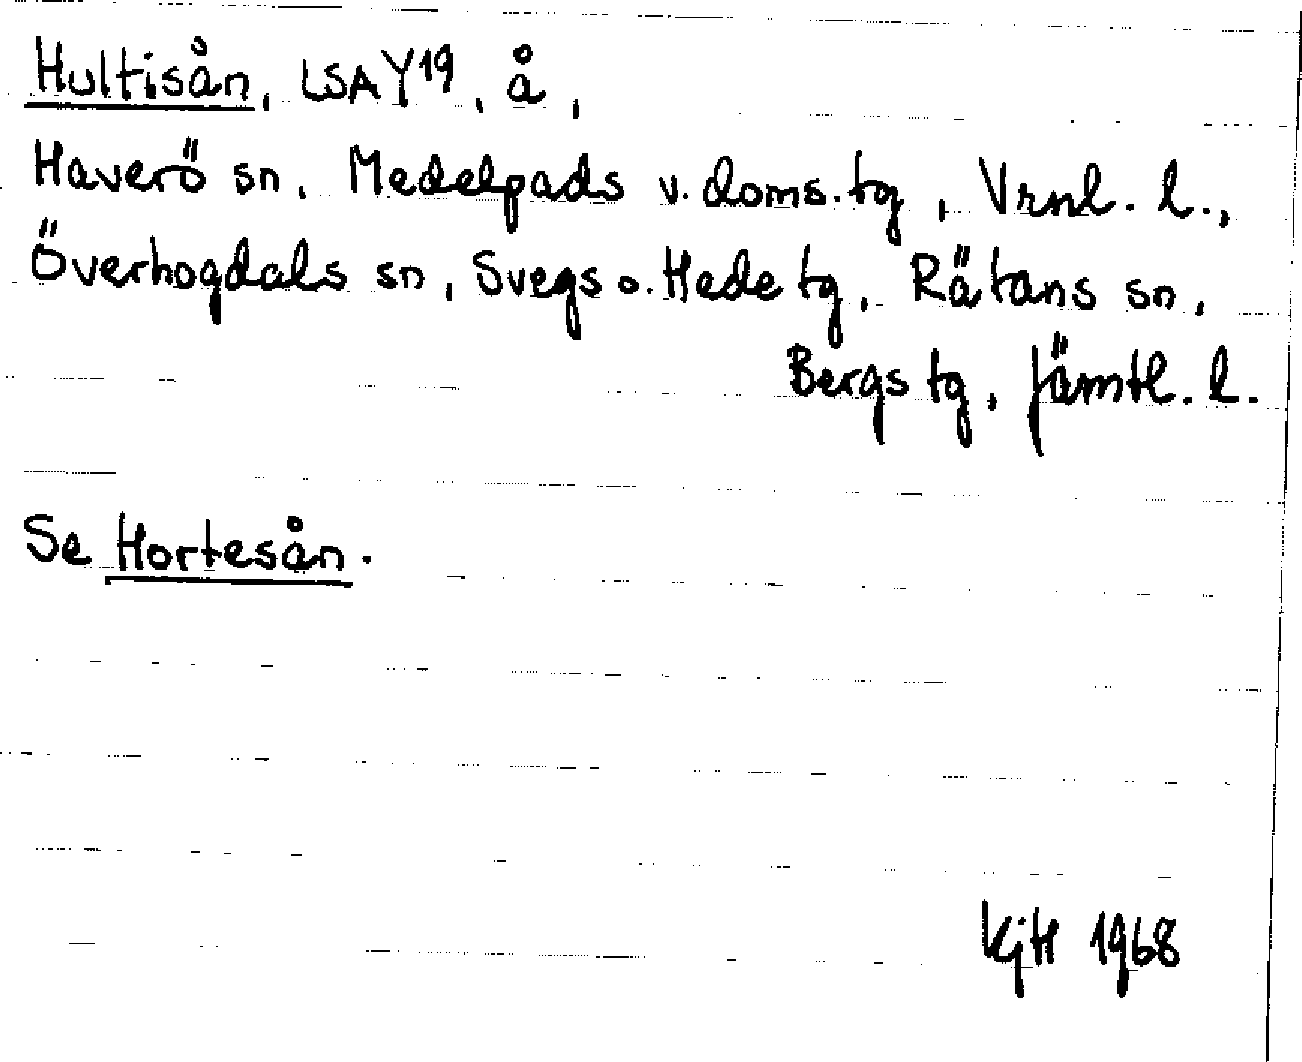 Hultisån, LSA Y19, å,
Haverö sn, Medelpads v. doms.tg, Vrnl. l.,
Överhogdals sn, Svegs o. Hede tg, Rätans sn,
Bergs tg, Jämtl. l.
Se Hortesån.
KjH 1968